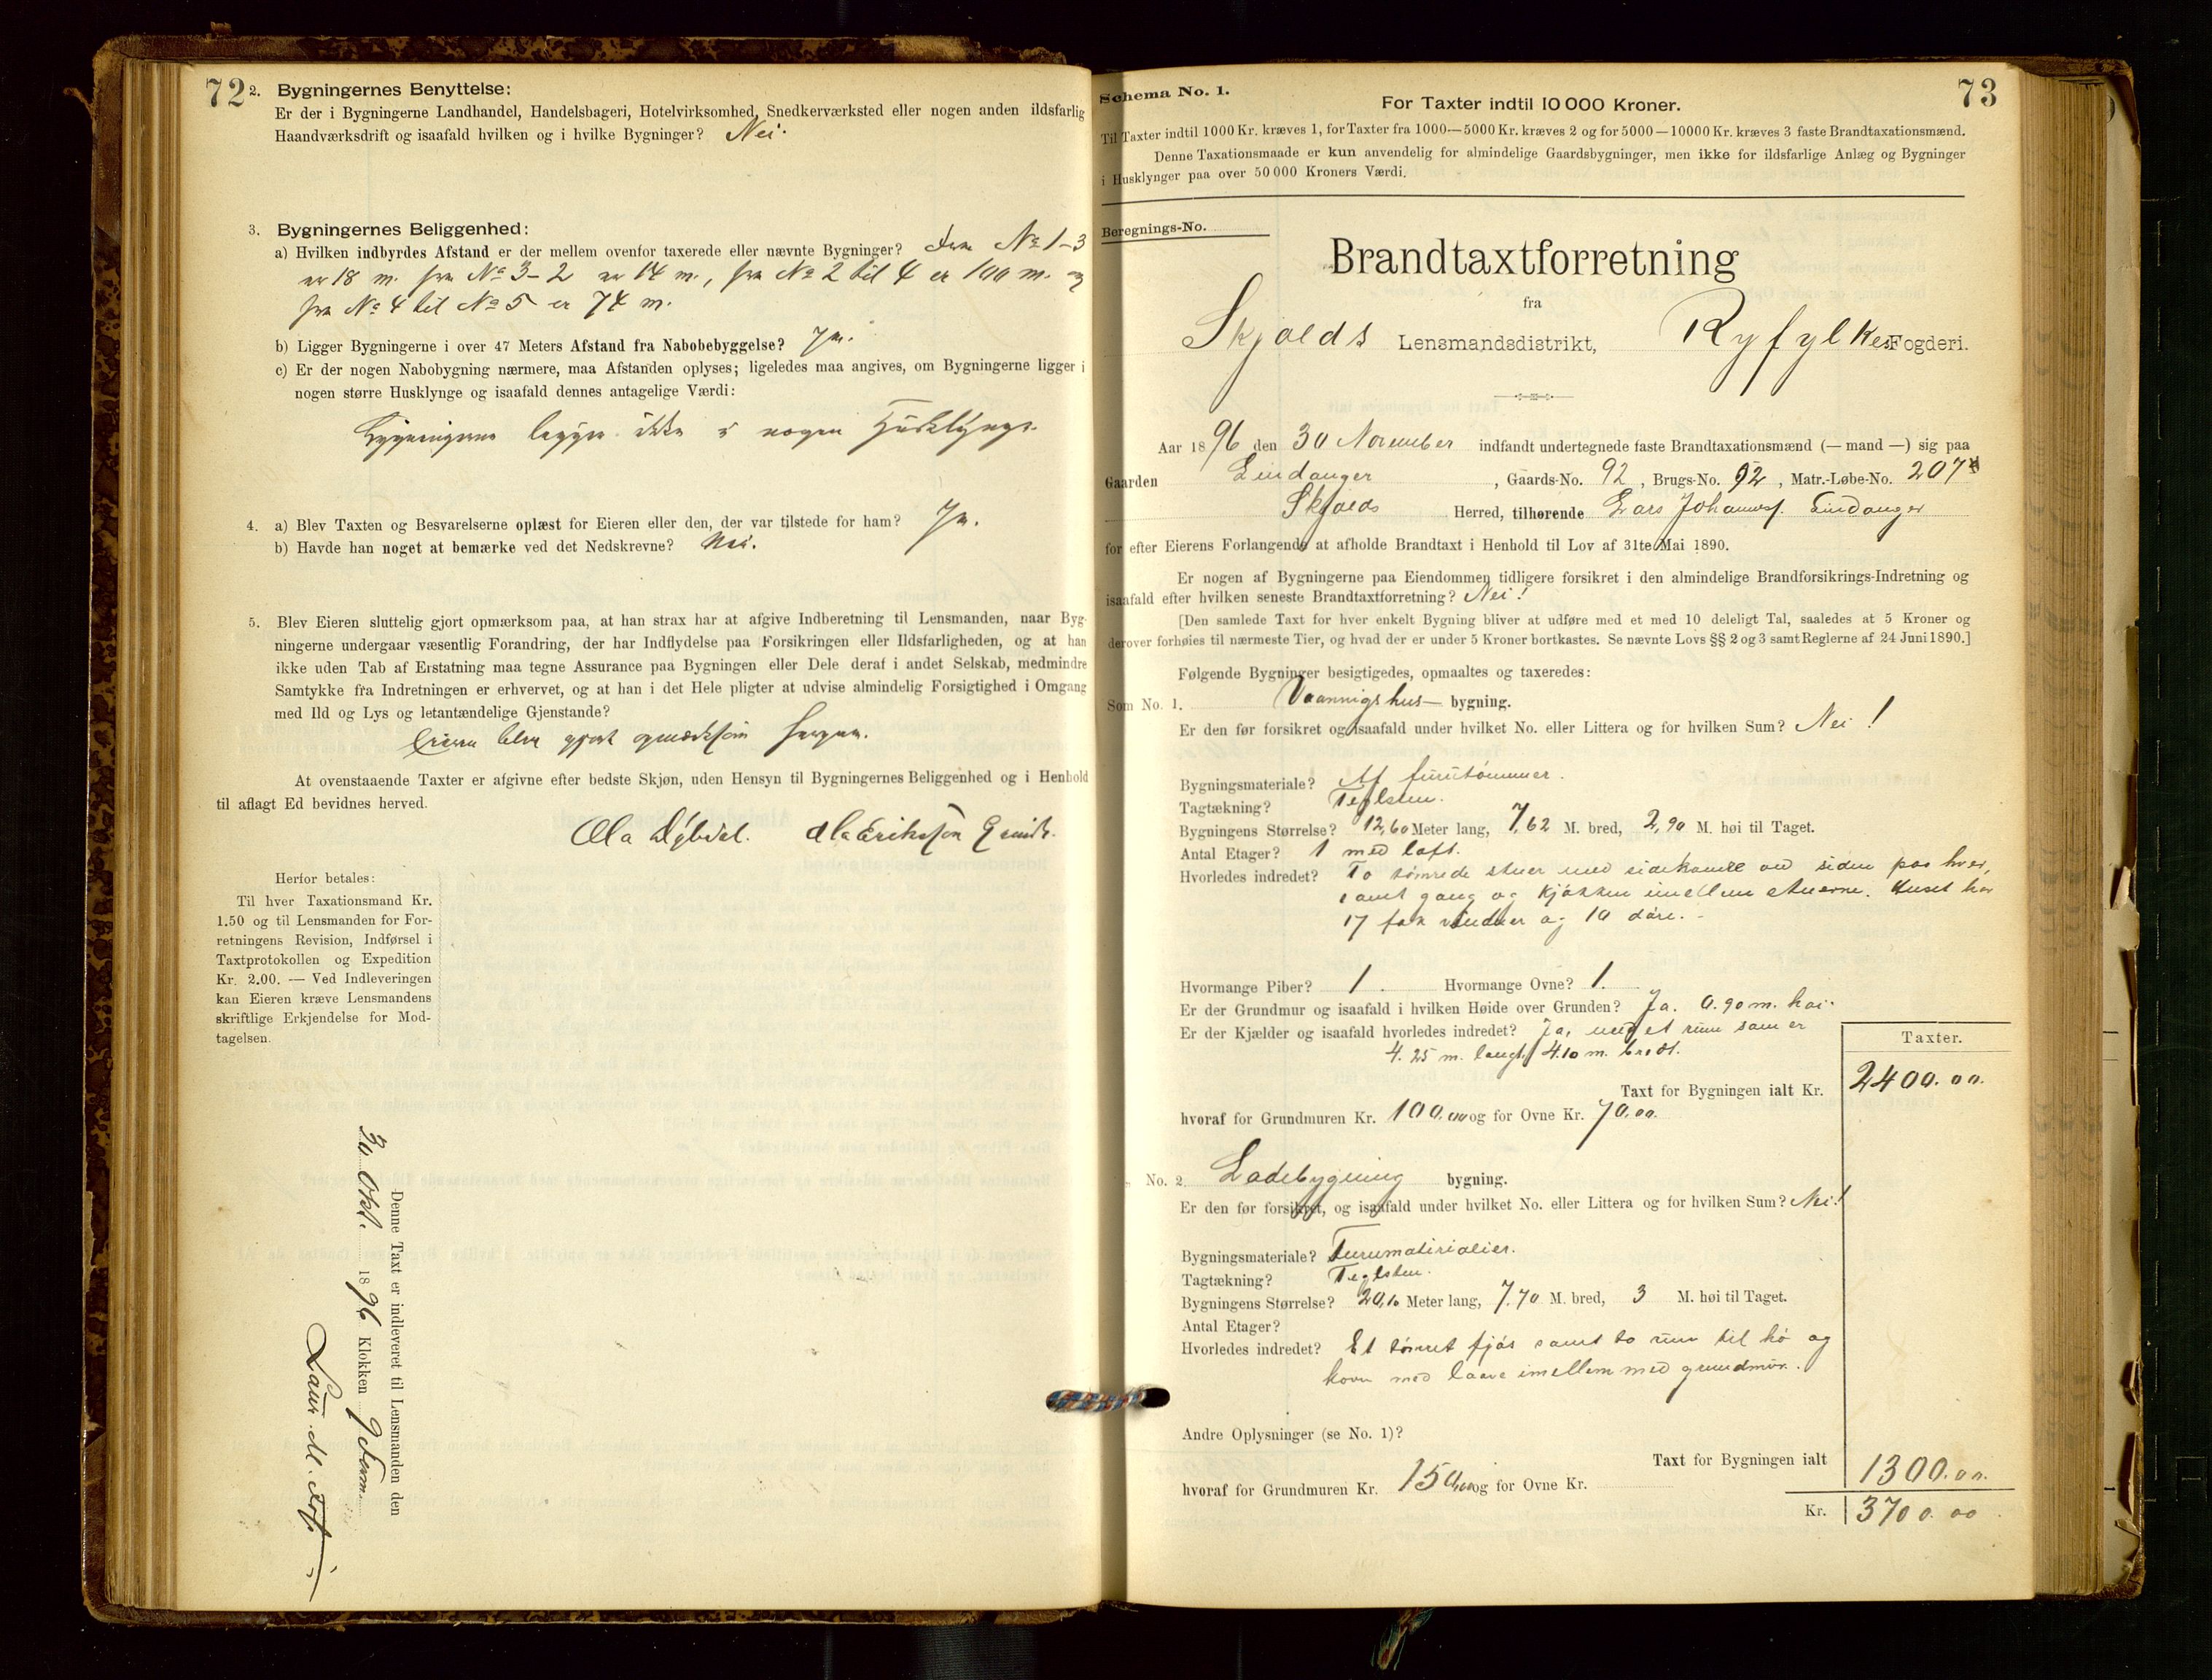 72
2. Bygningernes Benyttelse:
Er der i Bygningerne Landhandel, Handelsbageri, Hotelvirksomhed, Snedkerværksted eller nogen anden ildsfarlig
Haandværksdrift og isaafald hvilken og i hvilke Bygninger? Nei.
3. Bygningernes Beliggenhed:
a) Hvilken indbyrdes Afstand er der mellem ovenfor taxerede eller nævnte Bygninger? Fra No 1-3
er 18 m. fra No 3-2 er 14 m., fra No 2 til 4 er 100 m. og
fra No 4 til No 5 er 74 m.
b) Ligger Bygningerne i over 47 Meters Afstand fra Nabobebyggelse? Ja.
c) Er der nogen Nabobygning nærmere, maa Afstanden oplyses; ligeledes maa angives, om Bygningerne ligger i
nogen større Husklynge og isaafald dennes antagelige Værdi:
Bygningerne ligger ikke i nogen Husklynge.
4. a) Blev Taxten og Besvarelserne oplæst for Eieren eller den, der var tilstede for ham? Ja.
b) Havde han noget at bemærke ved det Nedskrevne? Nei.
5. Blev Eieren sluttelig gjort opmærksom paa, at han strax har at afgive Indberetning til Lensmanden, naar Byg-
ningerne undergaar væsentlig Forandring, der har Indflydelse paa Forsikringen eller Ildsfarligheden, og at han
ikke uden Tab af Erstatning maa tegne Assurance paa Bygningen eller Dele deraf i andet Selskab, medmindre
Samtykke fra Indretningen er erhvervet, og at han i det Hele pligter at udvise almindelig Forsigtighed i Omgang
med Ild og Lys og letantændelige Gjenstande?
Eieren blev gjort opmærksom
At ovenstaaende Taxter er afgivne efter bedste Skjøn, uden Hensyn til Bygningernes Beliggenhed og i Henhold
til aflagt Ed bevidnes herved.
Ola Eriksson
Herfor betales:
Til hver Taxationsmand Kr.
1.50 og til Lensmanden for For-
retningens Revision, Indførsel i
Taxtprotokollen og Expedition
Kr. 2.00. — Ved Indleveringen
kan Eieren kræve Lensmandens
skriftlige Erkjendelse for Mod-
tagelsen.
Denne Taxt er indleveret til Lensmanden den
30 Okt. 1896 Klokken 9 Form.
73
Schema No. 1.
For Taxter indtil 10 000 Kroner.
Til Taxter indtil 1000 Kr. kræves 1, for Taxter fra 1000—5000 Kr. kræves 2 og for 5000—10000 Kr. kræves 3 faste Brandtaxationsmænd.
Denne Taxationsmaade er kun anvendelig for almindelige Gaardsbygninger, men ikke for ildsfarlige Anlæg og Bygninger
i Husklynger paa over 50 000 Kroners Værdi.
Beregnings-No.
Brandtaxtforretning
fra
Skjolds Lensmandsdistrikt, Ryfylkes Fogderi.
Aar 1896 den 30 November indfandt undertegnede faste Brandtaxationsmænd (— mand —) sig paa
Gaarden Eindanger, Gaards-No. 92, Brugs-No. 92, Matr.-Løbe-No. 207
Skjolds Herred, tilhørende Lars Johannesf. Eindanger
for efter Eierens Forlangende at afholde Brandtaxt i Henhold til Lov af 31te Mai 1890.
Er nogen af Bygningerne paa Eiendommen tidligere forsikret i den almindelige Brandforsikrings-Indretning og
isaafald efter hvilken seneste Brandtaxtforretning? Nei!
[Den samlede Taxt for hver enkelt Bygning bliver at udføre med et med 10 deleligt Tal, saaledes at 5 Kroner og
derover forhøies til nærmeste Tier, og hvad der er under 5 Kroner bortkastes. Se nævnte Lovs §§ 2 og 3 samt Reglerne af 24 Juni 1890.]
Følgende Bygninger besigtigedes, opmaaltes og taxeredes:
Som No. 1. Vaannigshus— bygning.
Er den før forsikret og isaafald under hvilket No. eller Littera og for hvilken Sum? Nei!
Bygningsmateriale? Af furutømmer.
Tagtækning? Teglsten.
Bygningens Størrelse? 12,60 Meter lang, 7,62 M. bred, 2,90 M. høi til Taget.
Antal Etager? 1 med loft.
Hvorledes indredet? To tømrede stuer med sidekamre ved siden paa hver,
samt gang og kjøkken imellem stuerne. Huset har
17 fak vinduer og 10 døre.
Hvormange Piber? 1. Hvormange Ovne? 1.
Er der Grundmur og isaafald i hvilken Høide over Grunden? Ja. 0.90 m. høi.
Er der Kjælder og isaafald hvorledes indredet? Ja, med et rum som er
4.25 m. langt, 4.10 m. bredt.
Taxter.
Taxt for Bygningen ialt Kr. 2400.00.
hvoraf for Grundmuren Kr. 100.00 og for Ovne Kr. 70.00.
No. 2. Ladebygning bygning.
Er den før forsikret, og isaafald under hvilket No. eller Littera og for hvilken Sum? Nei!
Bygningsmateriale? Furumatirialier.
Tagtækning? Teglsten.
Bygningens Størrelse? 20,10 Meter lang, 7,70 M. bred, 3 M. høi til Taget.
Antal Etager?
Hvorledes indredet? Et tømret fjøs samt to rum til hø og
korn med laave imellem med grundmur.
Andre Oplysninger (se No. 1)?
Taxt for Bygningen ialt 1300.00.
hvoraf for Grundmuren Kr. 150,00 og for Ovne Kr.
Kr. 3700.00